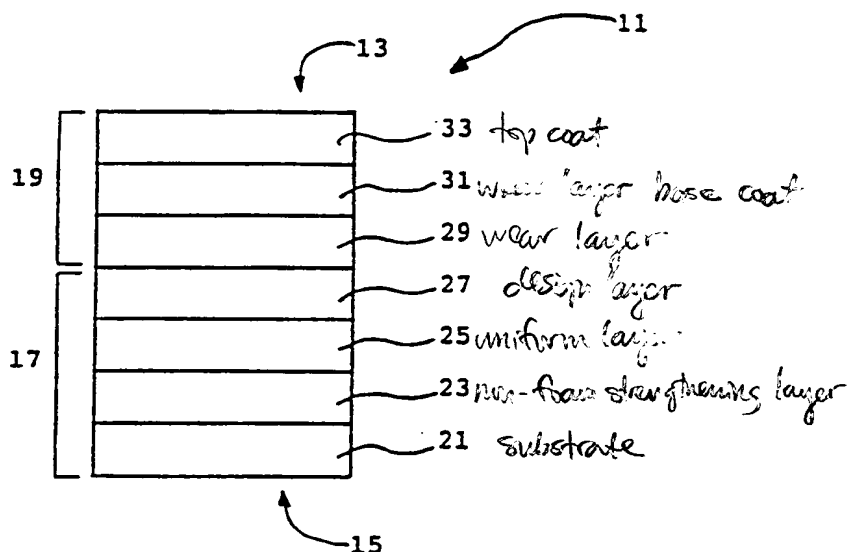 11
13
33 top coat
19
31 wear layer base coat
29 wear layer
27 design layer
25 uniform layer
17
23 non-foam strengthening layer
21 substrate
15